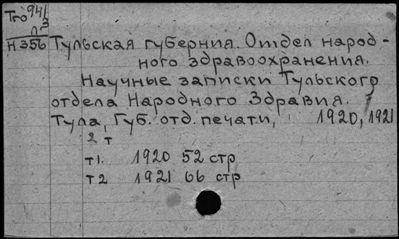 Тго 94/
л3
Н 356
Тульская губерния. Отдел народ-
ного здравоохранения.
Научные записки Тульского
отдела Народного Здравия.
Тула, Губ. отд. печати, 1920, 1921
2 т
т1. 1920 52 стр
т2 1921 66 стр